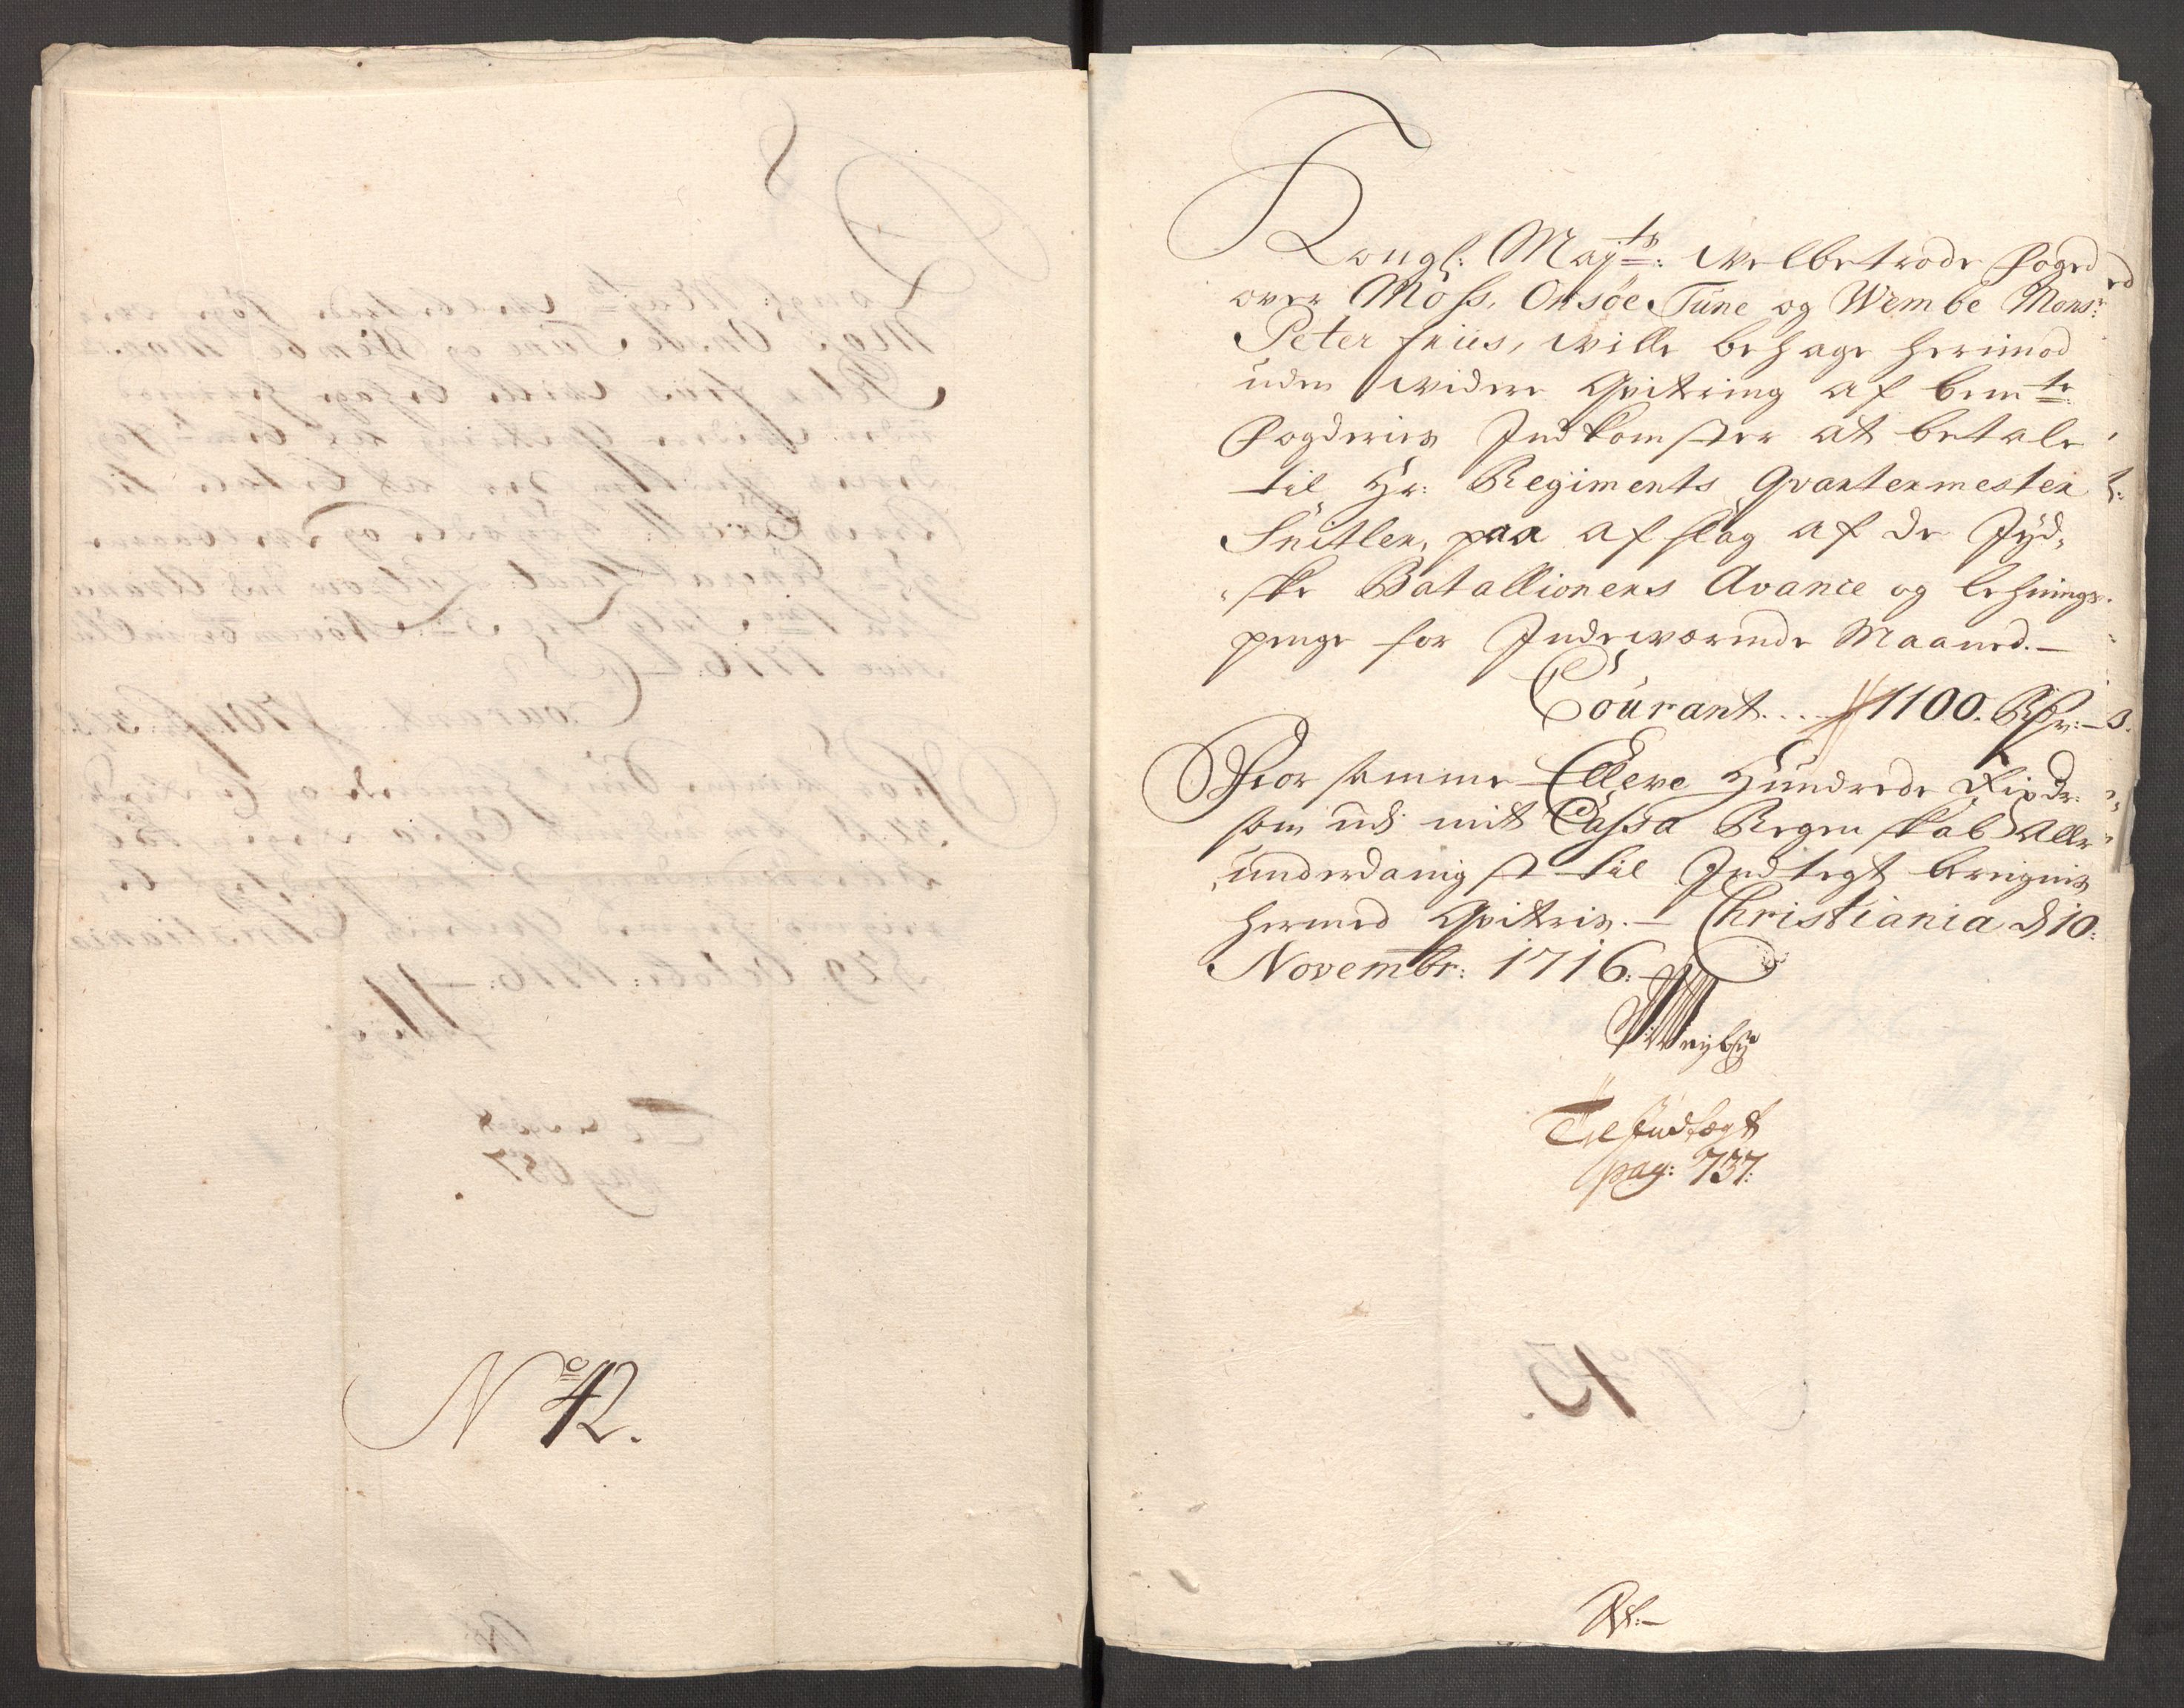 No 42.
Kongl: Maÿts: welbetrode Foged
over Moss, Onsøe Tune og Wembe Monsr:
Peter Friis, wille behage herimod
uden widere Qvitering af bemte
Fogderies Indkomster at betale
til Hr: Regiments Qvartermester
Snitler, paa afslag af de Jÿd-
ske Batallioners Avance og lehnings-
penge for Indeværende Maaned.—
Courant... 1100. Rdr:— s.
Hvor samme Elleve Hundrede Rixdr:
som udi mit Cassa Regenskab Aller-
underdanigst til Indtegt bereignis
hermed Qviteris.— Christiania d 10:
Novembr: 1716:
Til Indtægt
pag: 737: